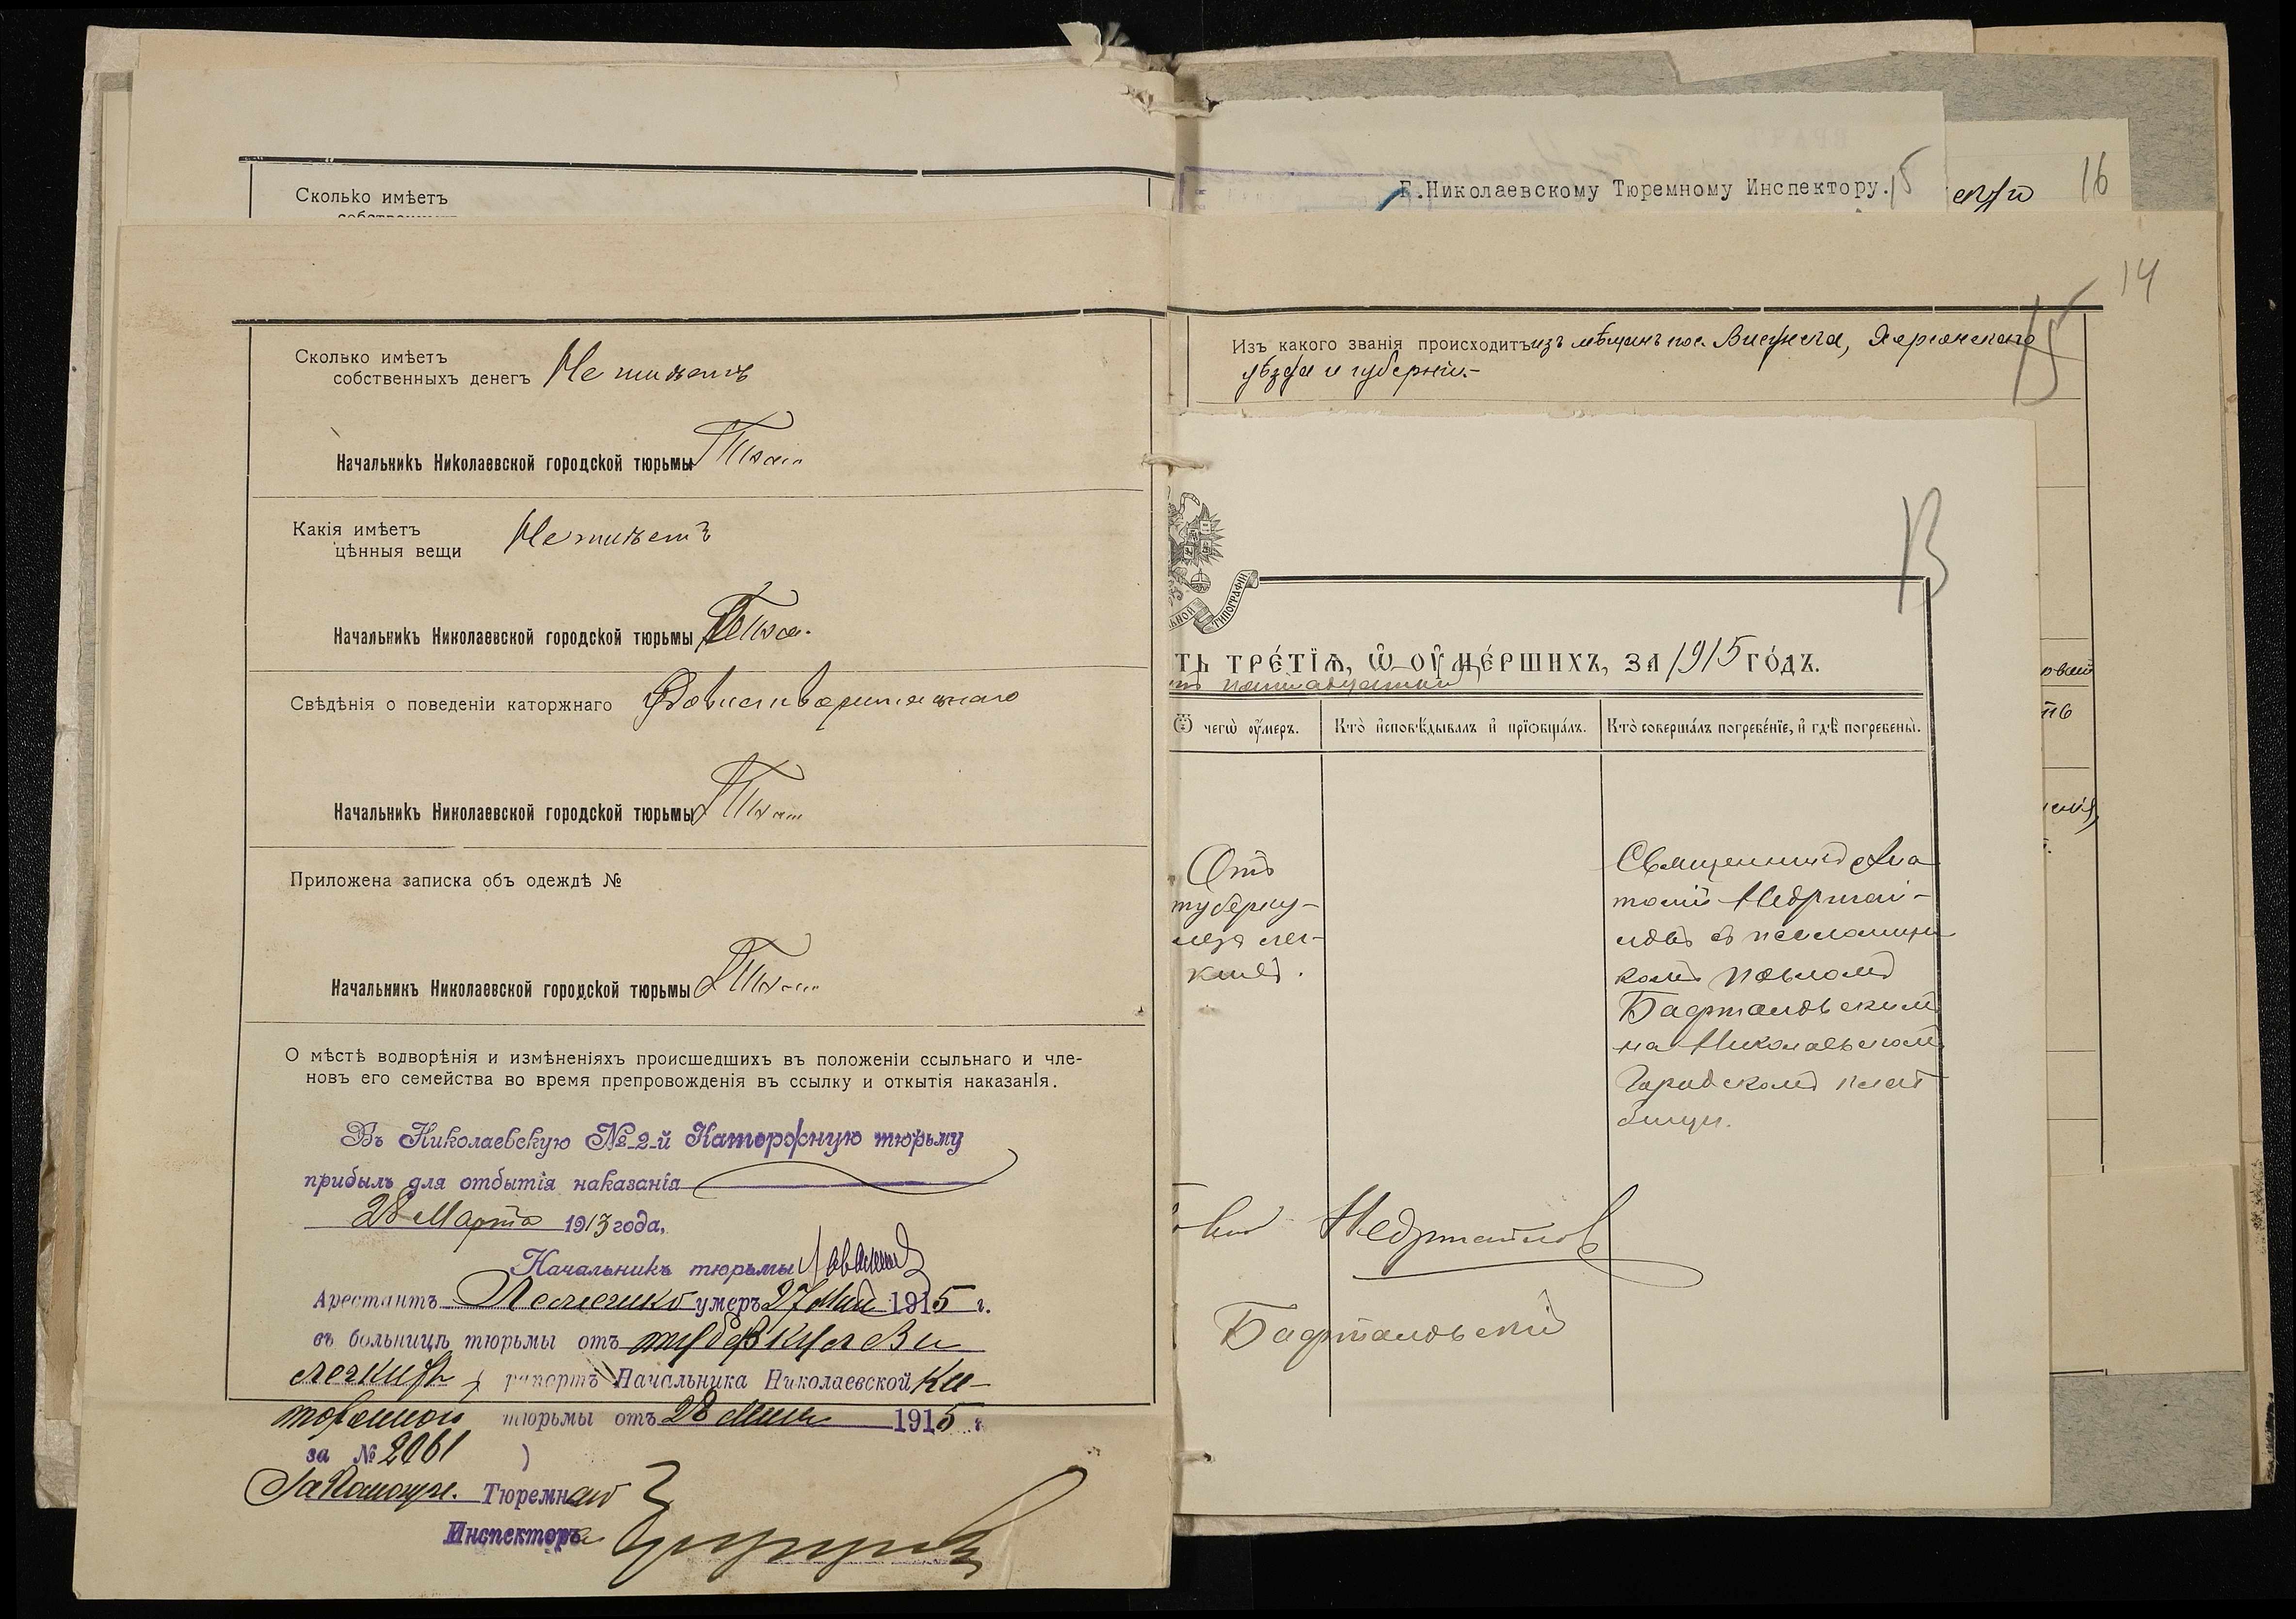 Сколько имѣетъ
Сколько имѣетъ
собственныхъ денегъ Не имѣетъ
Начальникъ Николаевской городской тюрьмы
Какія имѣетъ
цѣнныя вещи Не имѣетъ
Начальникъ Николаевской городской тюрьмы
Свѣдѣнія о поведеніи каторжнаго
Начальникъ Николаевской городской тюрьмы
Приложена записка объ одеждѣ №
Начальникъ Николаевской городской тюрьмы
О мѣстѣ водворѣнія и измѣненіяхъ происшедшихъ въ положеніи ссыльнаго и чле-
новъ его семейства во время препровожденія въ ссылку и откытія наказанія.
Въ Николаевскую №-2-й Каторжную тюрьму
прибылъ для отбытія наказанія
28 Марта 1913 года.
Начальникъ тюрьмы
Арестантъ умеръ 27 Мая 1915 г.
въ больницѣ тюрьмы отъ туберкулеза
легкихъ рапортъ Начальника Николаевской Ка-
торжной тюрьмы отъ 28 Мая 1915 г.
за № 2061 )
За Помощн. Тюремнаго
Инспектора
Г.Николаевскому Тюремному Инспектору.
15
16
14
Изъ какого званія происходитъ изъ мѣщанъ пос. Висунска, Херсонскаго
уѣзда и губерніи.-
15
13
ЬНОЙ ТИПОГРАФІИ.
ТЬ ТРЕ́ТІѦ, Ѿ ОУ҆МЕ́РШИХЪ, ЗА 1915 ГО́ДЪ.
Ѿ чегѡ̀ оу҆́меръ.
Кто̀ и҆сповѣ́дывалъ и҆ прїѡбща́лъ.
Кто̀ соверша́лъ погребе́нїе, и҆ гдѣ̀ погребены̀.
Отъ
туберку-
леза лег-
кихъ.
Священникъ Ана
толій Недржай-
ловъ съ псаломщи
комъ Павломъ
на Николаевскомъ
Городскомъ клад
бищѣ.
Недржайловъ